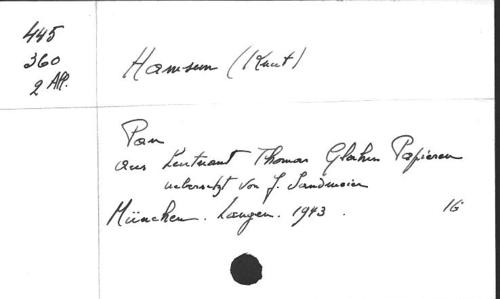 445
360
2 Aff.
Hamsun (Knut)
Pan
aus Leutnant Thomas Glahns Papieren
uebersetzt von J. Sandmeier
München. Langen. 1943. 16